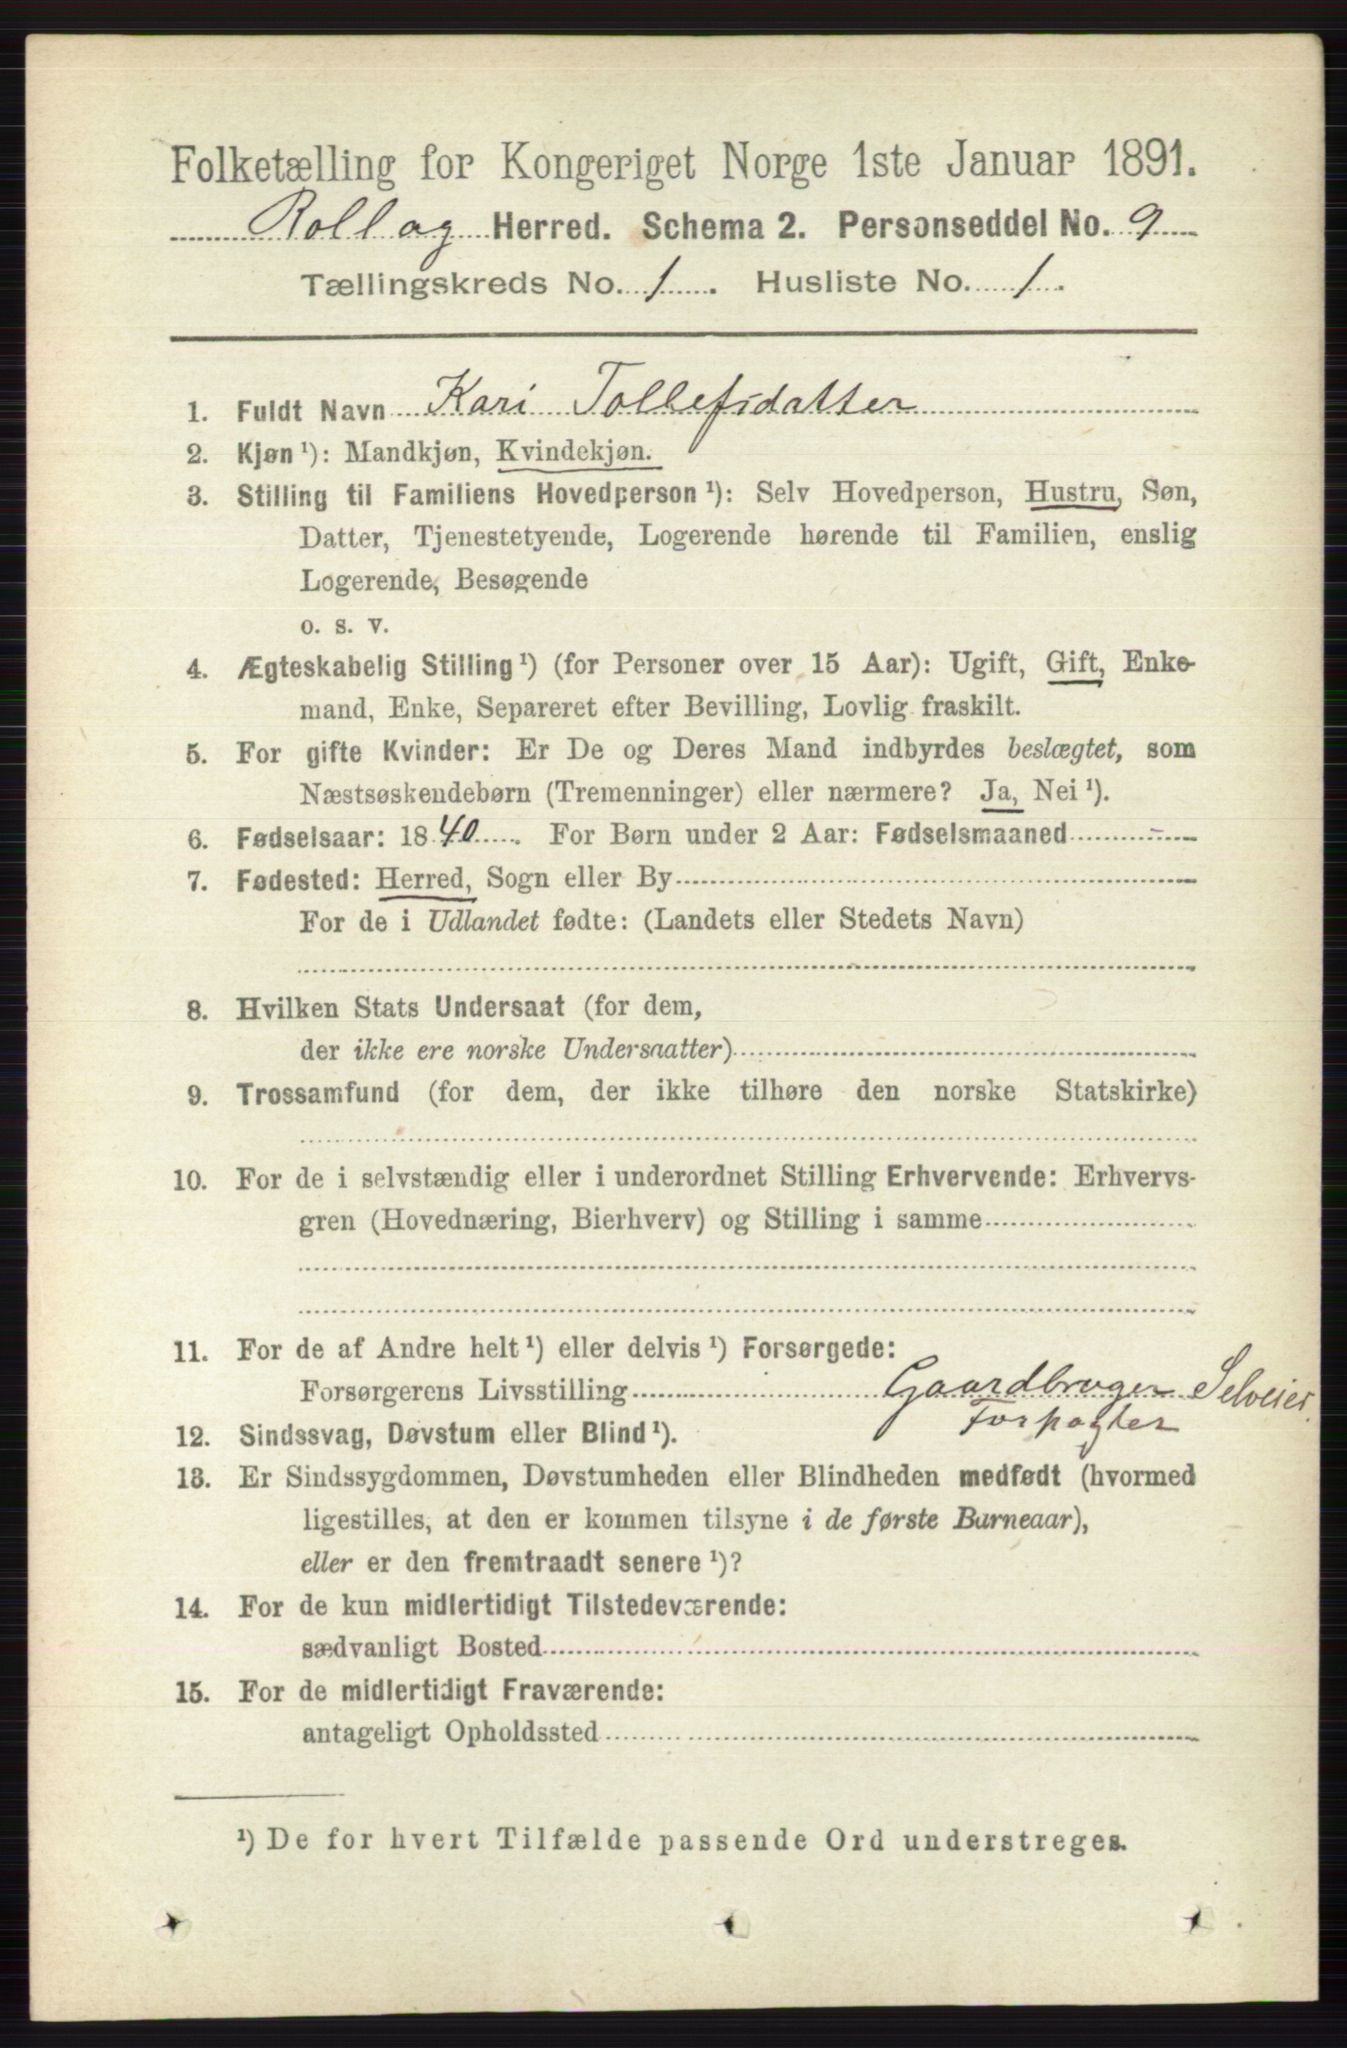 Folketælling for Kongeriget Norge 1ste Januar 1891.
Rollag Herred. Schema 2. Personseddel No. 9
Tællingskreds No. 1. Husliste No. 1.
1. Fuldt Navn Kari Tollefsdatter
2. Kjøn ¹): Mandkjøn, Kvindekjøn.
3. Stilling til Familiens Hovedperson ¹): Selv Hovedperson, Hustru, Søn,
Datter, Tjenestetyende, Logerende hørende til Familien, enslig
Logerende, Besøgende
o. s. v.
4. Ægteskabelig Stilling ¹) (for Personer over 15 Aar): Ugift, Gift, Enke-
mand, Enke, Separeret efter Bevilling, Lovlig fraskilt.
5. For gifte Kvinder: Er De og Deres Mand indbyrdes beslægtet, som
Næstsøskendebørn (Tremenninger) eller nærmere? Ja, Nei ¹).
6. Fødselsaar: 1840. For Børn under 2 Aar: Fødselsmaaned -
7. Fødested: Herred, Sogn eller By
For de i Udlandet fødte: (Landets eller Stedets Navn)
8. Hvilken Stats Undersaat (for dem,
der ikke ere norske Undersaatter)
9. Trossamfund (for dem, der ikke tilhøre den norske Statskirke)
10. For de i selvstændig eller i underordnet Stilling Erhvervende: Erhvervs-
gren (Hovednæring, Bierhverv) og Stilling i samme
11. For de af Andre helt ¹) eller delvis ¹) Forsørgede:
Forsørgerens Livsstilling Gaardbruger Selveier.
Forpagter
12. Sindssvag, Døvstum eller Blind ¹).
13. Er Sindssygdommen, Døvstumheden eller Blindheden medfødt (hvormed
ligestilles, at den er kommen tilsyne i de første Barneaar),
eller er den fremtraadt senere ¹)?
14. For de kun midlertidigt Tilstedeværende:
sædvanligt Bosted
15. For de midlertidigt Fraværende:
antageligt Opholdssted
¹) De for hvert Tilfælde passende Ord understreges.